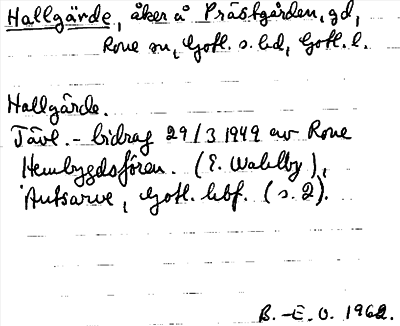 Hallgärde, åker å Prästgården, gd,
Rone sn, Gotl. s. hd, Gotl. l.
Hallgärde.
Tävl.-bidrag 29/3 1949 av Rone
Hembygdsfören. (E. Wahlby),
Autsarve, Gotl. hbf. (s. 2).
B.-E. O. 1962.